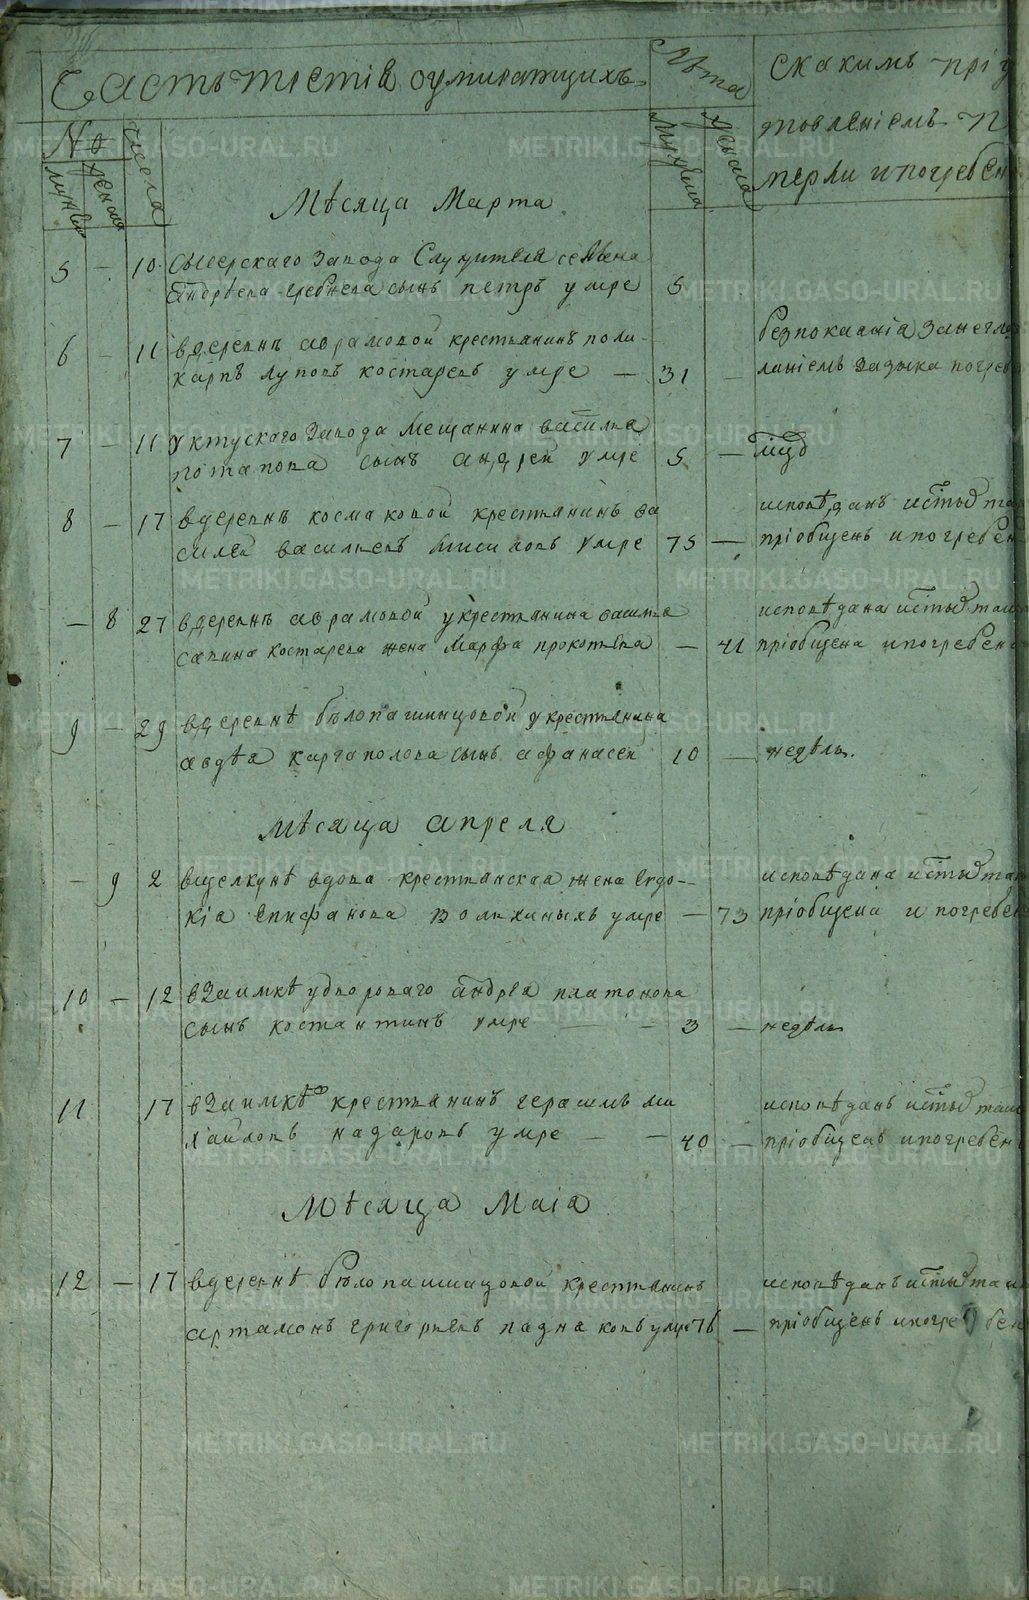 Часть третія оумирающихъ
Лѣта
скакимъ пріу
товленіемъ п
мерли ипогребен
№
числа
мужеска
женска
мужеска
женска
Мѣсяца Марта
5 — 10 Сысерскаго завода Служителя семена
андреева сынъ петръ умре 5
6 — 11 вдеревнѣ аврамовой крестьянинъ поли-
карпъ луповъ костаревъ умре — 31 —
безпокаянія
языка погреб
7 — 11 уктускаго завода мещанина василья
потапова сынъ андрей умре 5 —
8 — 17 вдеревнѣ космаковой крестьянинъ ва
силей васильевъ умре 75 —
исповѣданъ истыхъ та
пріобщенъ ипогребен
— 8 27 вдеревнѣ аврамовой укрестьянина
костарева жена Марфа прокопьева — 41
исповѣдана истыхъ таи
пріобщена ипогребена
9 — 29 вдеревнѣ бѣлопашинцовой укрестьянина
авдѣа каргаполова сынъ афанасей 10 — недѣль.
Мѣсяца апреля
— 9 2 вщелкунѣ вдова крестьянская жена Евдо-
кіа Епифанова умре — 73
исповѣдана истыхъ таи
пріобщена и погребен
10 — 12 взаимкѣ удвороваго андрея платонова
сынъ костантинъ умре — 3 — недѣль
11 17 взаимкѣ крестьянинъ герасимъ ми
хайловъ назаровъ умре — 40 —
исповѣданъ истыхъ таи
пріобщенъ ипогребен
Мѣсяца Маія
12 — 17 вдеревнѣ бѣлопашинцовой крестьянинъ
артамонъ григорьевъ умре 76 —
исповѣданъ истыхъ таи
пріобщенъ ипогребен
METRIKI.GASO-URAL.RU